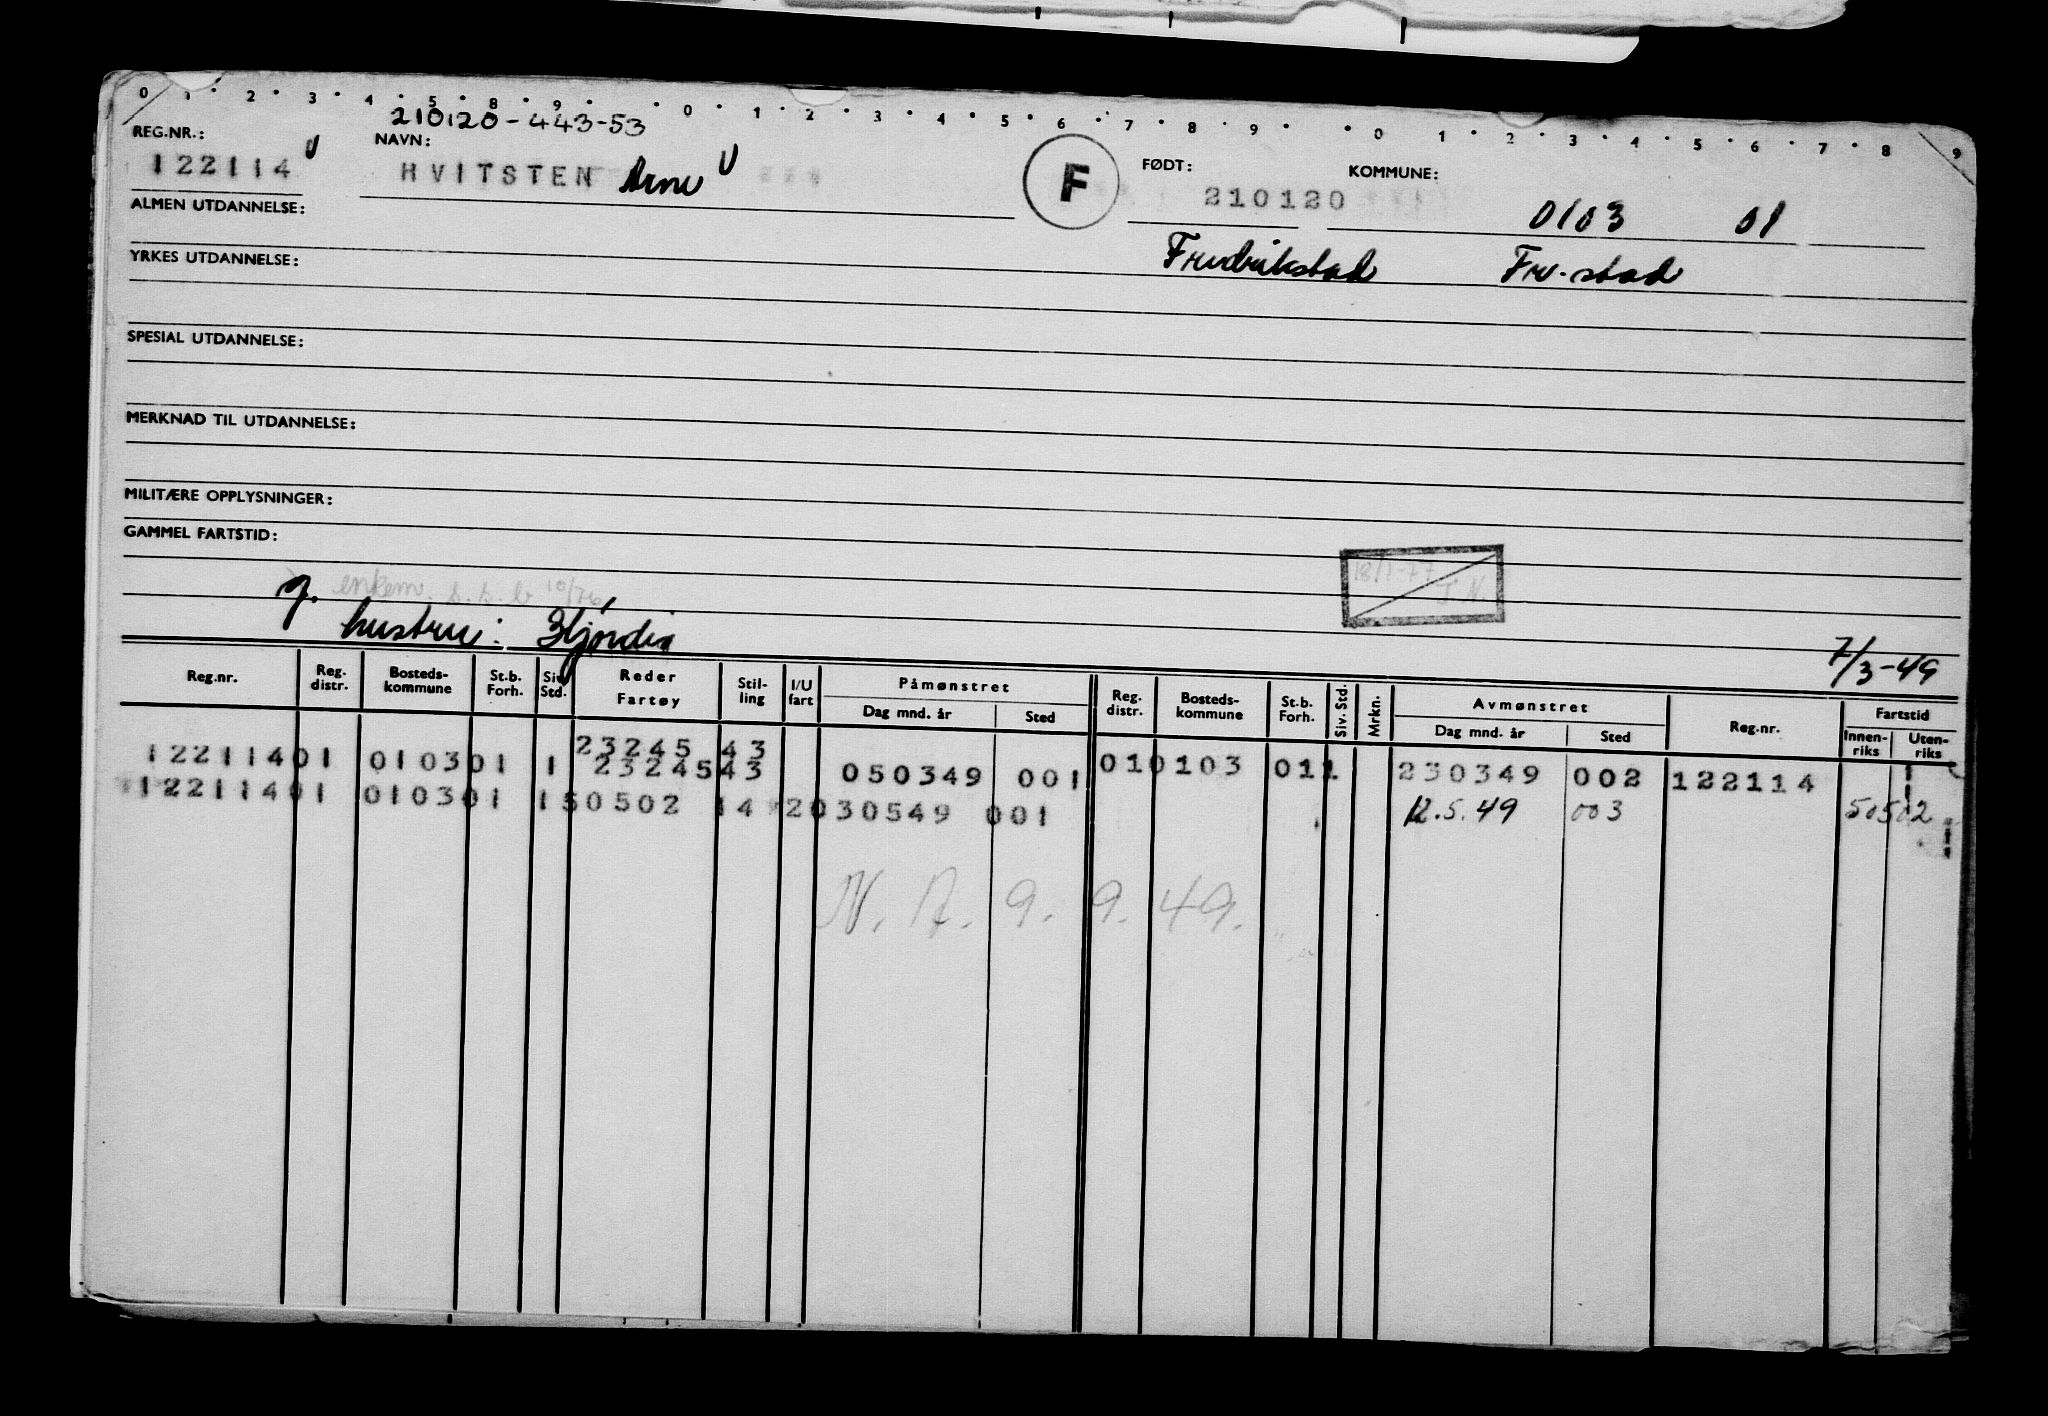 0 1 2 3 4 5 8 9 0 1 2 3 4 5 6 7 8 9 0 1 2 3 4 5 6 7 8 9
210120-443-53
REG.NR.: NAVN: FØDT: KOMMUNE:
122114 HVITSTEN Arne F 210120 0103 01
ALMEN UTDANNELSE:
Fredrikstad Fr.stad
YRKES UTDANNELSE:
SPESIAL UTDANNELSE:
MERKNAD TIL UTDANNELSE:
MILITÆRE OPPLYSNINGER:
GAMMEL FARTSTID:
18/1-77 T.N.
g. enkem. 10/76
hustru: Hjørdis
7/3-49
Reg.nr. Reg. distr. Bosteds- kommune St.b. Forh. Siv. Std. Reder Fartøy Stil- ling I/U fart Påmønstret Dag mnd. år Sted Reg. distr. Bosteds- kommune St.b. Forh. Siv. Std. Mrkn. Avmønstret Dag mnd. år Sted Reg.nr. Fartstid Innen- riks Uten- riks
23245 43
122114 01 0103 01 1 23245 43 050349 001 01 0103 01 1 230349 002 122114
122114 01 0103 01 1 50502 14 2 030549 001 12.5.49 003 50502
N. A. 9. 9. 49.